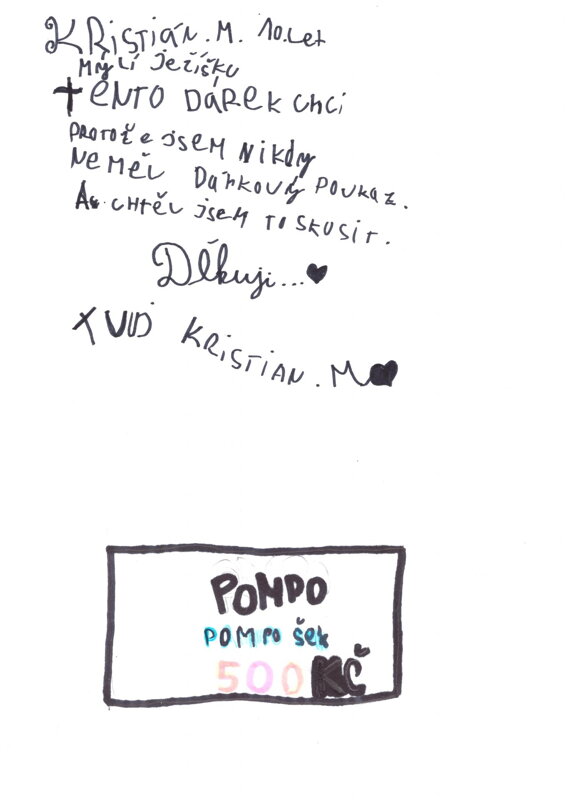 KRistián.M. 10.let
Mylí Ježíšku
tENTO DÁREK chci
PROTOže jsem Nikdy
Neměl Dárkový Poukaz.
A. chtěl jsem to skusit.
Děkuji...♥
TVůJ KRistian.M♥
POMPO
POMPo šek
500 Kč